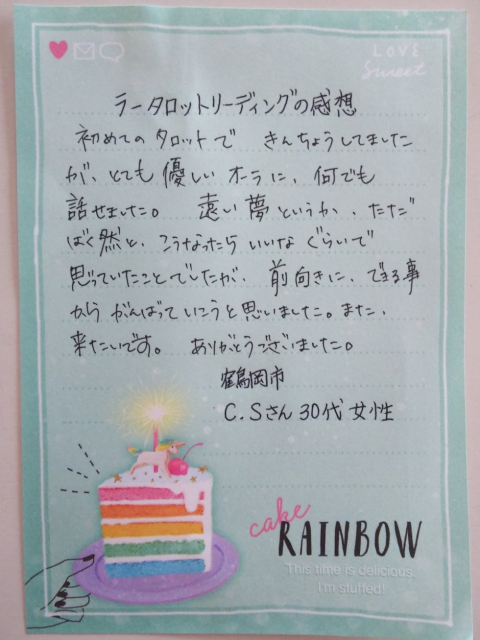 LOVE
Sweet
ラータロットリーディングの感想
初めてのタロットで きんちょうしてました
が、とても優しいオーラに、何でも
話せました。 遠い夢というか、ただ
ばく然と、こうなったらいいなぐらいで
思っていたことでしたが、前向きに、できる事
からがんばっていこうと思いました。また、
来たいです。 ありがとうございました。
鶴岡市
C.Sさん 30代 女性
cake
RAINBOW
This time is delicious.
I'm stuffed!